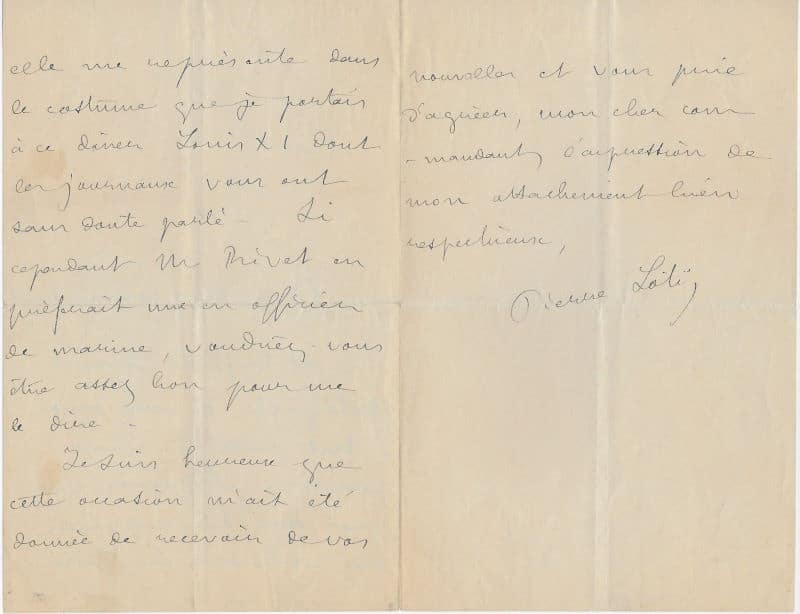 elle me représente dans
le costume que je portais
à ce dîner Louis XI dont
les journaux vous ont
sans doute parlé – Si
cependant Mr Privet en
préférait une en officier
de marine, voudriez-vous
être assez bon pour me
le dire –
Je suis heureux que
cette occasion m'ait été
donnée de recevoir de vos
nouvelles et vous prie
d'agréer, mon cher com
-mandant, l'expression de
mon attachement bien
respectueux,
Pierre Loti